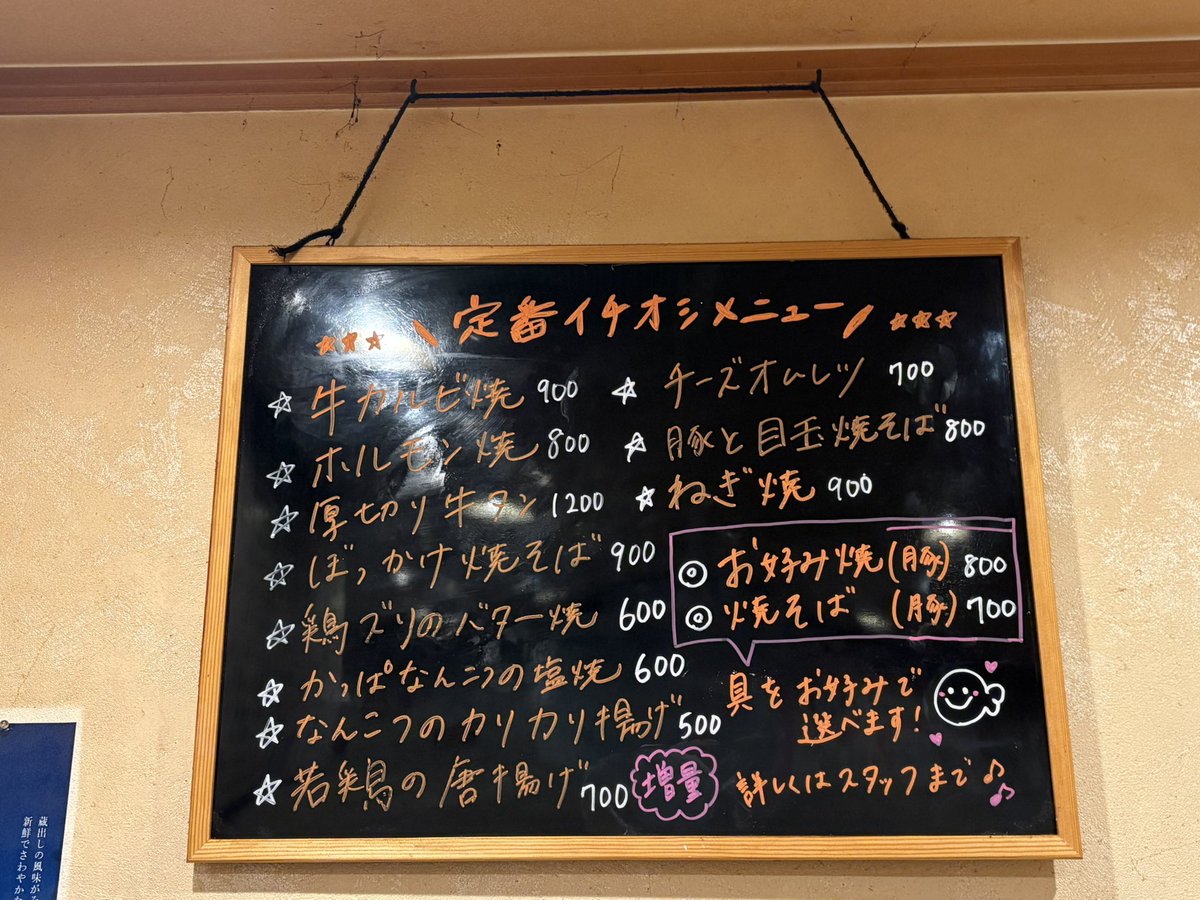 定番イチオシメニュー
牛カルビ焼 900
ホルモン焼 800
厚切り牛タン 1200
ぼっかけ焼そば 900
鶏ズリのバター焼 600
かっぱなんこつの塩焼 600
なんこつのカリカリ揚げ 500
若鶏の唐揚げ 700 増量
チーズオムレツ 700
豚と目玉焼そば 800
ねぎ焼 900
◎ お好み焼(豚) 800
◎ 焼そば (豚) 700
具をお好みで
選べます!
詳しくはスタッフまで♪♫
蔵出しの風味が
新鮮でさわやか